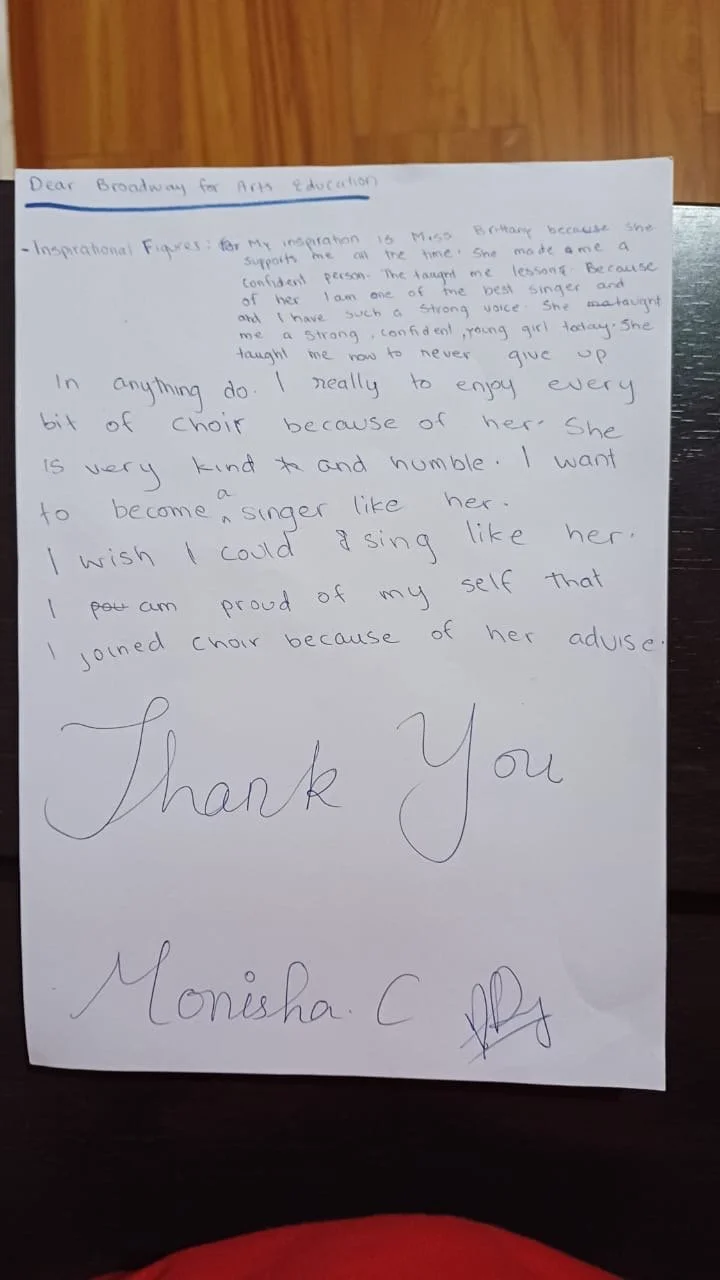 Dear Broadway for Arts Education
- Inspirational Figures: for My inspiration is Miss Brittany because she
supports me all the time. She made me a
confident person. The taught me lessons. Because
of her I am one of the best singer and
and I have such a strong voice. She taught
me a strong, confident, young girl today. She
taught me how to never give up
In anything do. I really to enjoy every
bit of choir because of her. She
is very kind and humble. I want
to become a singer like her.
I wish I could sing like her.
I am proud of my self that
I joined choir because of her advise.
Thank You
Monisha. C